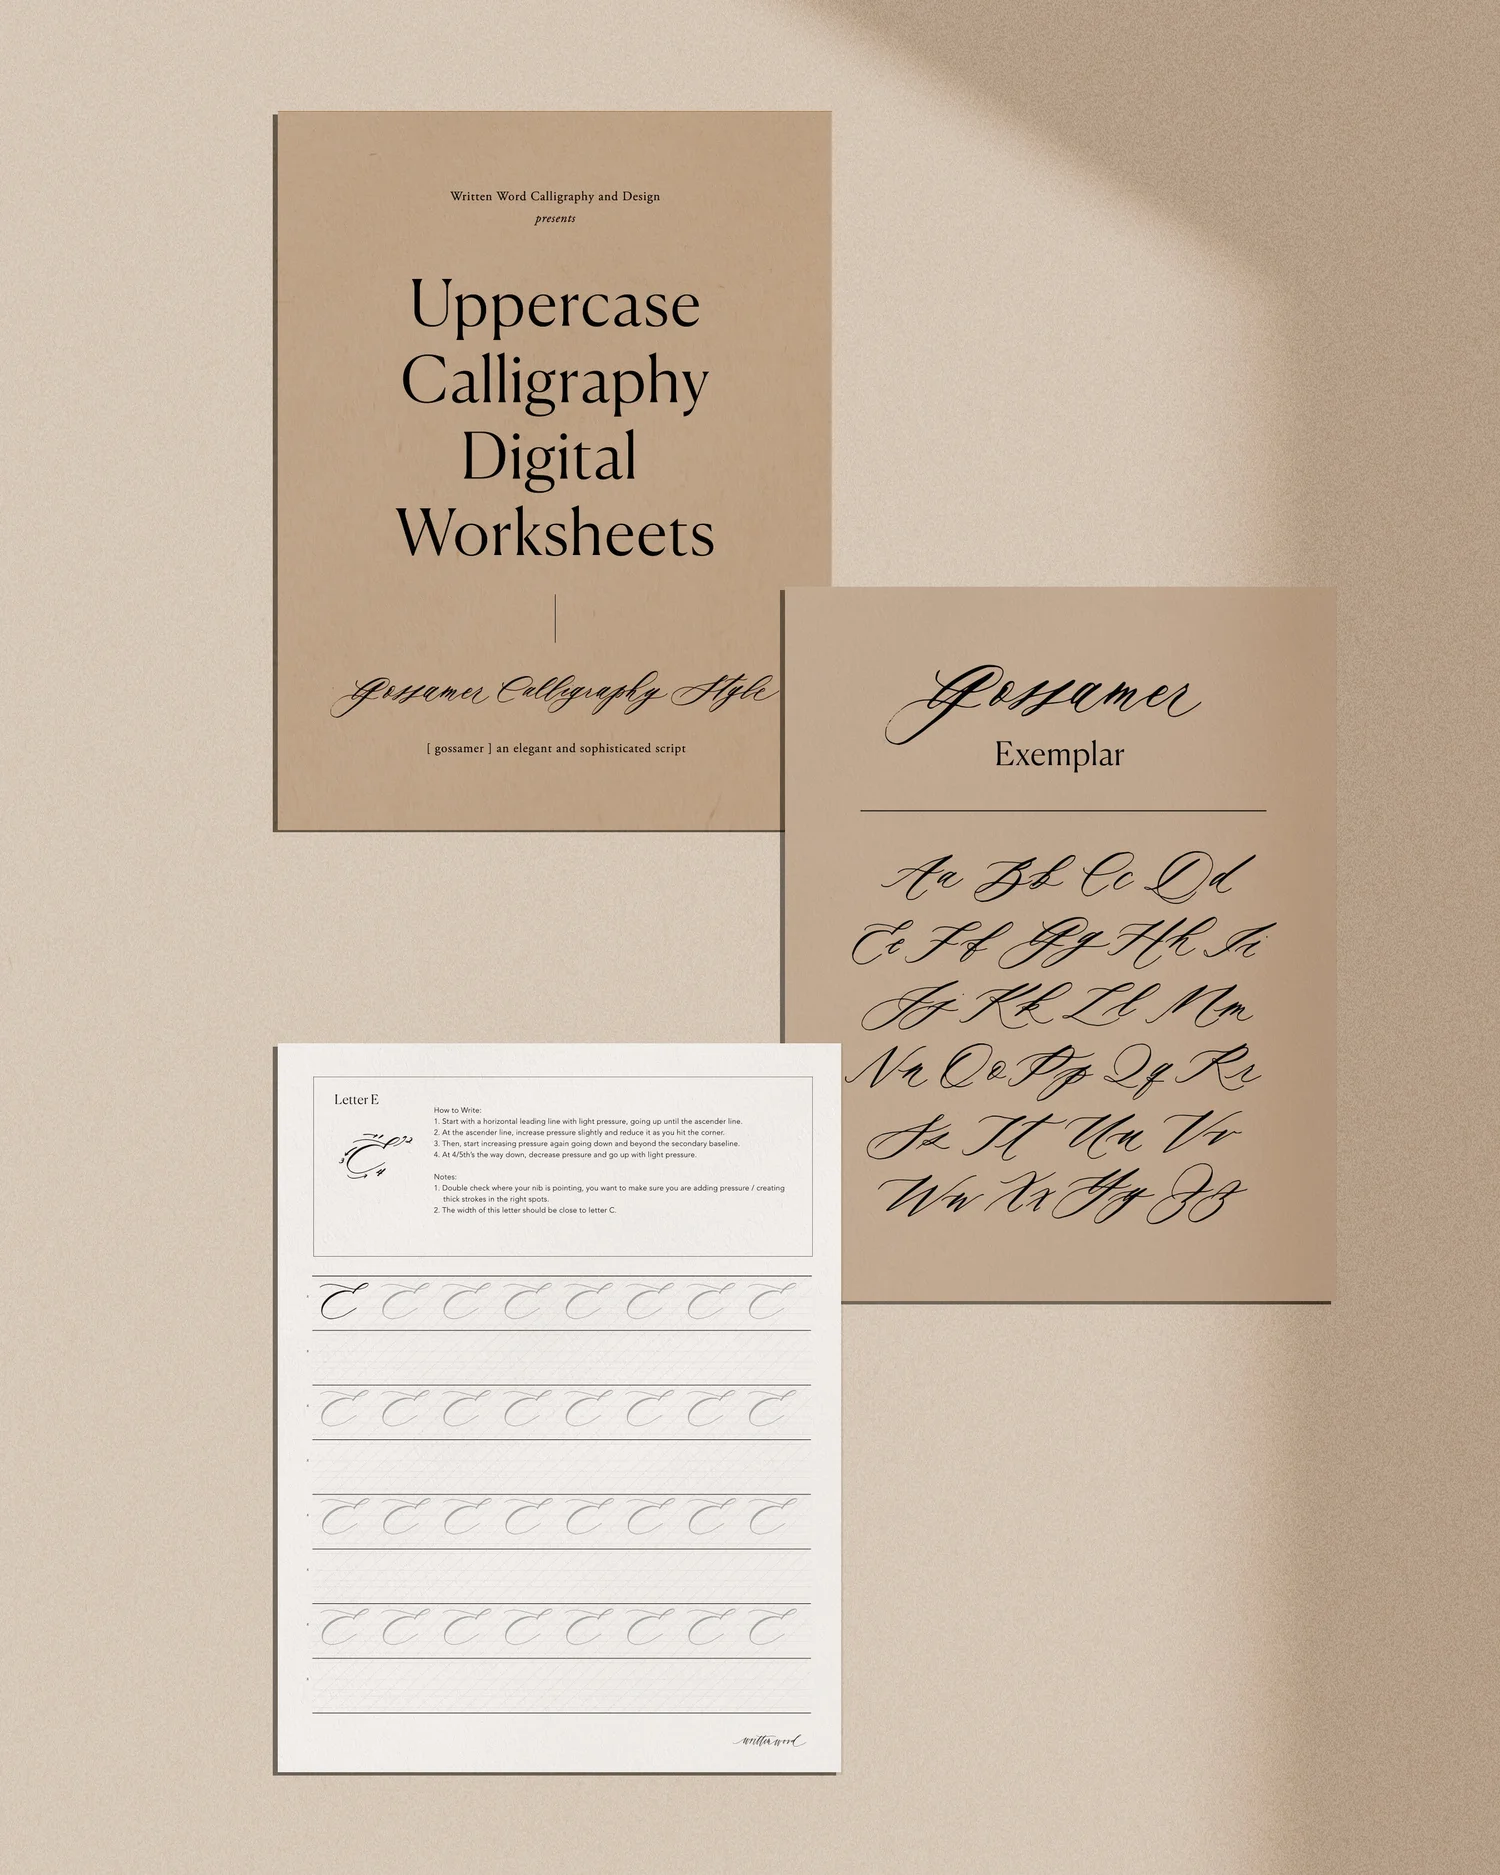 Written Word Calligraphy and Design
presents
Uppercase
Calligraphy
Digital
Worksheets
Gossamer Calligraphy Style
[ gossamer ] an elegant and sophisticated script
Gossamer
Exemplar
Aa Bb Cc Dd
Ee Ff Gg Hh Ii
Jj Kk Ll Mm
Nn Oo Pp Qq Rr
Ss Tt Uu Vv
Ww Xx Yy Zz
Letter E
How to Write:
1. Start with a horizontal leading line with light pressure, going up until the ascender line.
2. At the ascender line, increase pressure slightly and reduce it as you hit the corner.
3. Then, start increasing pressure again going down and beyond the secondary baseline.
4. At 4/5th's the way down, decrease pressure and go up with light pressure.
Notes:
1. Double check where your nib is pointing, you want to make sure you are adding pressure / creating
thick strokes in the right spots.
2. The width of this letter should be close to letter C.
E E E E E E E E
E E E E E E E E
E E E E E E E E
E E E E E E E E
written word